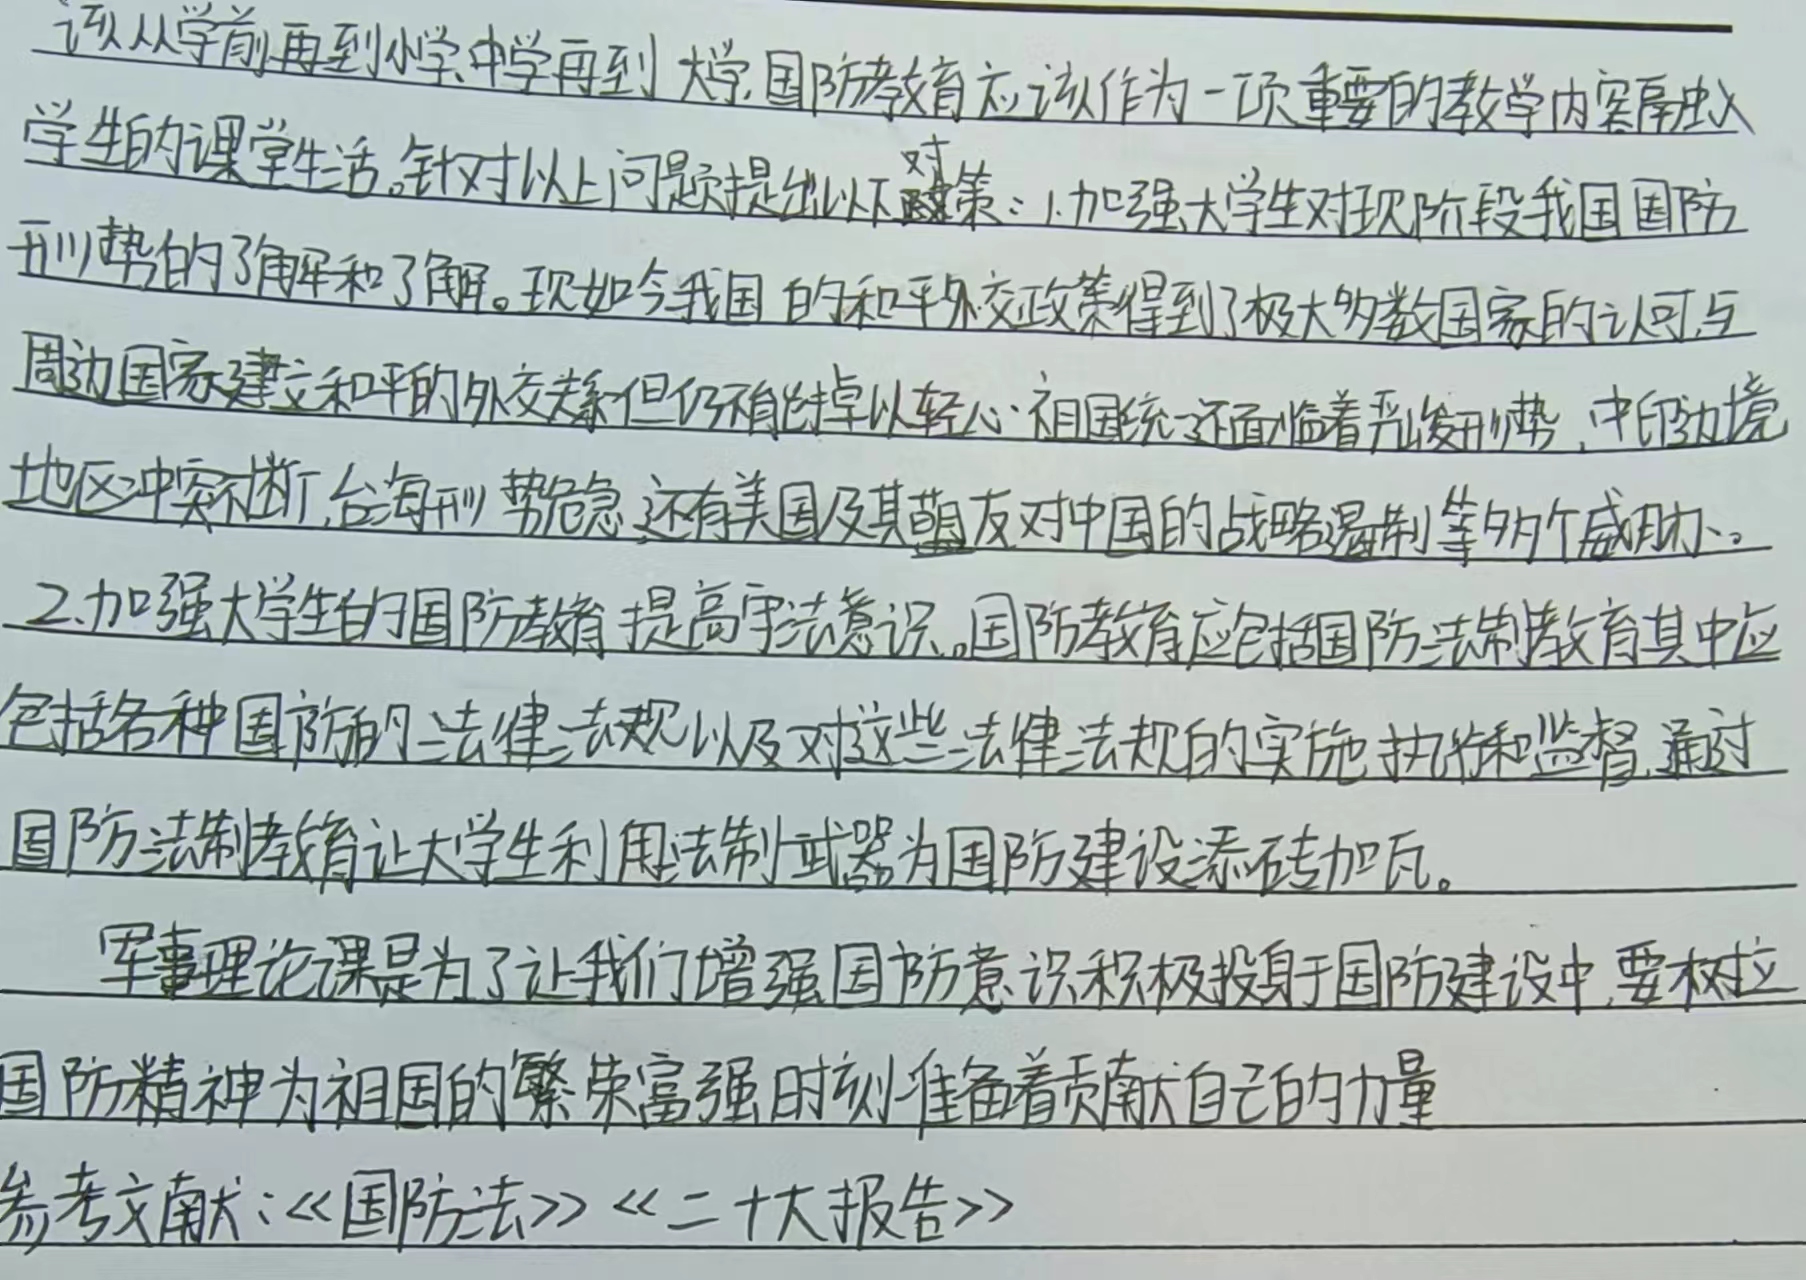 该从学前再到小学、中学再到大学,国防教育应该作为一项重要的教学内容融入
学生的课堂生活。针对以上问题提出以下对策:1.加强大学生对现阶段我国国防
形势的了解和了解。现如今我国的和平外交政策得到了极大多数国家的认可,与
周边国家建立和平的外交关系但仍不能掉以轻心.祖国统一还面临着严峻形势,中印边境
地区冲突不断,台海形势危急,还有美国及其盟友对中国的战略遏制等多个威胁。
2.加强大学生的国防教育,提高守法意识。国防教育应包括国防法制教育其中应
包括各种国防的法律法规以及对这些法律法规的实施执行和监督,通过
国防法制教育让大学生利用法制武器为国防建设添砖加瓦。
军事理论课是为了让我们增强国防意识积极投身于国防建设中,要树立
国防精神为祖国的繁荣富强时刻准备着贡献自己的力量
参考文献:<<国防法>> <<二十大报告>>